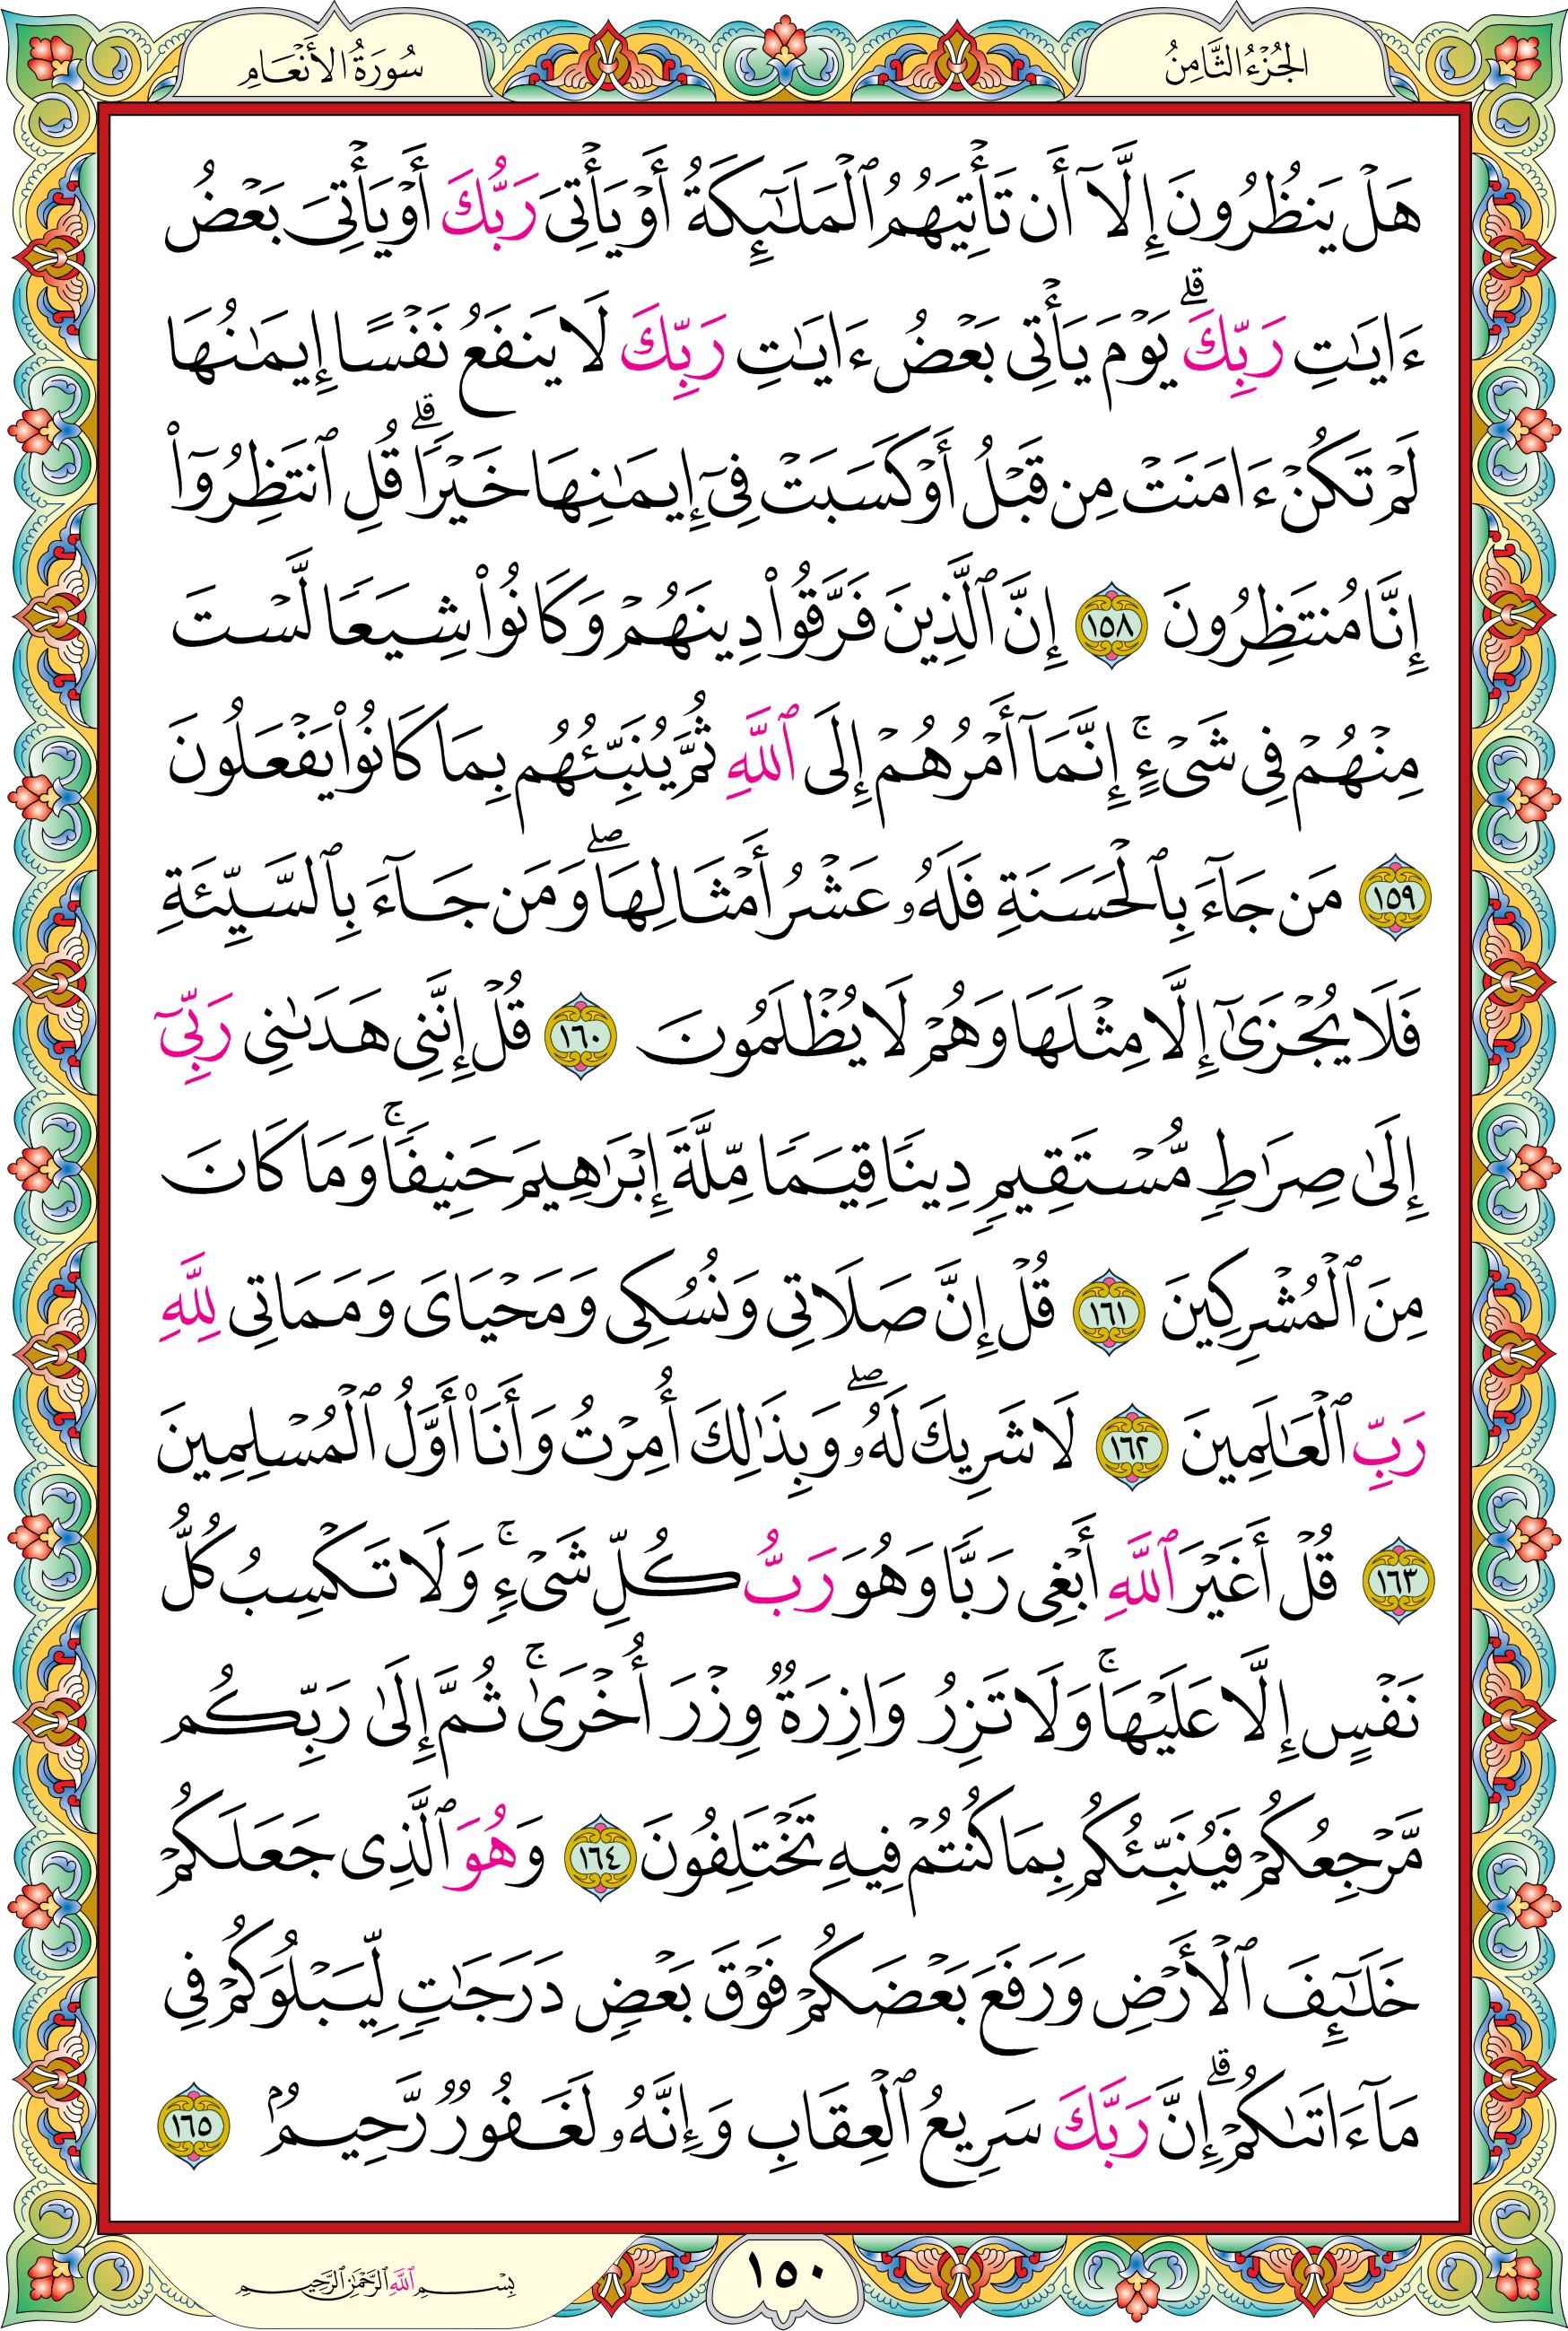 الجُزْءُ الثَّامِنُ
سُورَةُ الأَنْعَامِ
هَلْ يَنظُرُونَ إِلَّآ أَن تَأْتِيَهُمُ ٱلْمَلَـٰٓئِكَةُ أَوْ يَأْتِىَ رَبُّكَ أَوْ يَأْتِىَ بَعْضُ
ءَايَـٰتِ رَبِّكَ ۗ يَوْمَ يَأْتِى بَعْضُ ءَايَـٰتِ رَبِّكَ لَا يَنفَعُ نَفْسًا إِيمَـٰنُهَا
لَمْ تَكُنْ ءَامَنَتْ مِن قَبْلُ أَوْ كَسَبَتْ فِىٓ إِيمَـٰنِهَا خَيْرًا ۗ قُلِ ٱنتَظِرُوٓا۟
إِنَّا مُنتَظِرُونَ ١٥٨ إِنَّ ٱلَّذِينَ فَرَّقُوا۟ دِينَهُمْ وَكَانُوا۟ شِيَعًا لَّسْتَ
مِنْهُمْ فِى شَىْءٍ ۚ إِنَّمَآ أَمْرُهُمْ إِلَى ٱللَّهِ ثُمَّ يُنَبِّئُهُم بِمَا كَانُوا۟ يَفْعَلُونَ
١٥٩ مَن جَآءَ بِٱلْحَسَنَةِ فَلَهُۥ عَشْرُ أَمْثَالِهَا ۖ وَمَن جَآءَ بِٱلسَّيِّئَةِ
فَلَا يُجْزَىٰٓ إِلَّا مِثْلَهَا وَهُمْ لَا يُظْلَمُونَ ١٦٠ قُلْ إِنَّنِى هَدَىٰنِى رَبِّىٓ
إِلَىٰ صِرَٰطٍ مُّسْتَقِيمٍ دِينًا قِيَمًا مِّلَّةَ إِبْرَٰهِيمَ حَنِيفًا ۚ وَمَا كَانَ
مِنَ ٱلْمُشْرِكِينَ ١٦١ قُلْ إِنَّ صَلَاتِى وَنُسُكِى وَمَحْيَاىَ وَمَمَاتِى لِلَّهِ
رَبِّ ٱلْعَـٰلَمِينَ ١٦٢ لَا شَرِيكَ لَهُۥ ۖ وَبِذَٰلِكَ أُمِرْتُ وَأَنَا۠ أَوَّلُ ٱلْمُسْلِمِينَ
١٦٣ قُلْ أَغَيْرَ ٱللَّهِ أَبْغِى رَبًّا وَهُوَ رَبُّ كُلِّ شَىْءٍ ۚ وَلَا تَكْسِبُ كُلُّ
نَفْسٍ إِلَّا عَلَيْهَا ۚ وَلَا تَزِرُ وَازِرَةٌ وِزْرَ أُخْرَىٰ ۚ ثُمَّ إِلَىٰ رَبِّكُم
مَّرْجِعُكُمْ فَيُنَبِّئُكُم بِمَا كُنتُمْ فِيهِ تَخْتَلِفُونَ ١٦٤ وَهُوَ ٱلَّذِى جَعَلَكُمْ
خَلَـٰٓئِفَ ٱلْأَرْضِ وَرَفَعَ بَعْضَكُمْ فَوْقَ بَعْضٍ دَرَجَـٰتٍ لِّيَبْلُوَكُمْ فِى
مَآ ءَاتَىٰكُمْ ۗ إِنَّ رَبَّكَ سَرِيعُ ٱلْعِقَابِ وَإِنَّهُۥ لَغَفُورٌ رَّحِيمٌۢ ١٦٥
١٥٠
بِسْمِ ٱللَّهِ ٱلرَّحْمَـٰنِ ٱلرَّحِيمِ